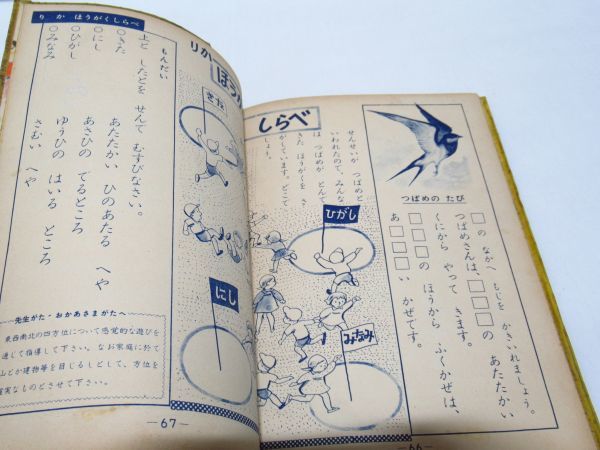 つばめの たび
□の なかへ もじを かきいれましょう。
つばめさんは、□□□の あたたかい
くにから やって きます。
□□□の ほうから ふくかぜは、
あ□□□い かぜです。
しらべ
せんせいが つばめと
いわれたので、みんな
は つばめが とんで
きた ほうがくを さ
がしています。どこで
しょう。
ひがし
みなみ
—66—
りか ほうがくしらべ
りかー
ほう
きた
にし
もんだい
上と したとを せんで むすびなさい。
○きた
○にし
○ひがし
○みなみ
あたたかい ひのあたる へや
あさひの でるところ
ゆうひの はいる ところ
さむい へや
先生がた・おかあさまがたへ
東西南北の四方位について感覚的な遊びを
通じて指導して下さい。なお家庭に於て
山とか建物等を目じるしとして、方位を
確実なものとさせて下さい。
—67—